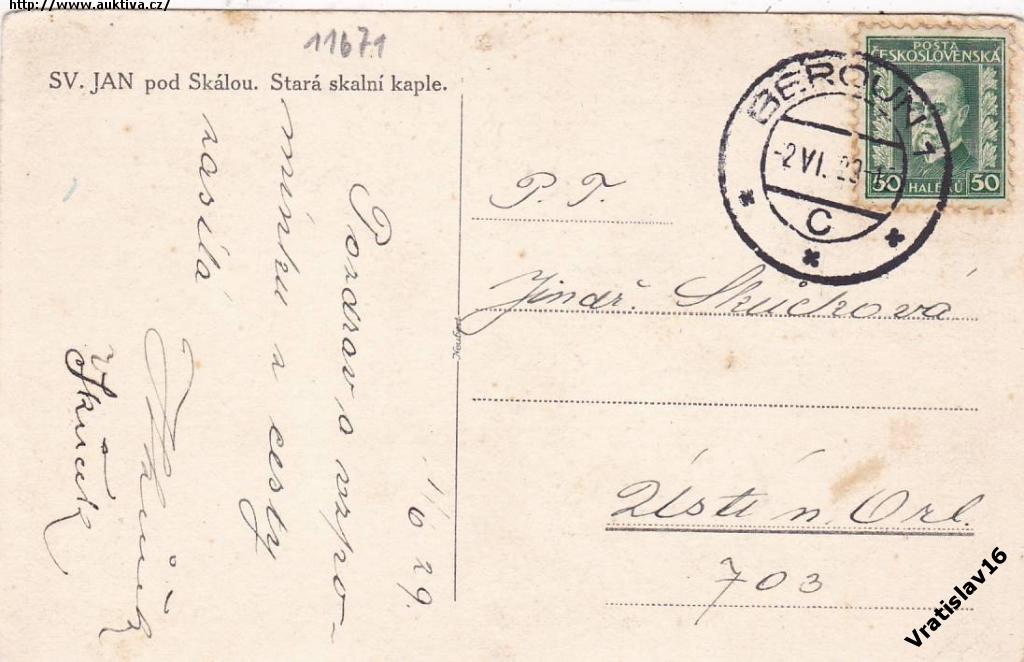 http://www.auktiva.cz/
11671
SV. JAN pod Skálou. Stará skalní kaple.
POŠTA
ČESKOSLOVENSKÁ
50 HALÉŘŮ 50
BEROUN 1
-2 VI. 29
C
P. T.
Jindř. Skučková
Ústí n. Orl.
703
1/6 29.
Pozdrav a vzpo-
mínku z cesty
zasílá
Skuček
Neubert
Vratislav16